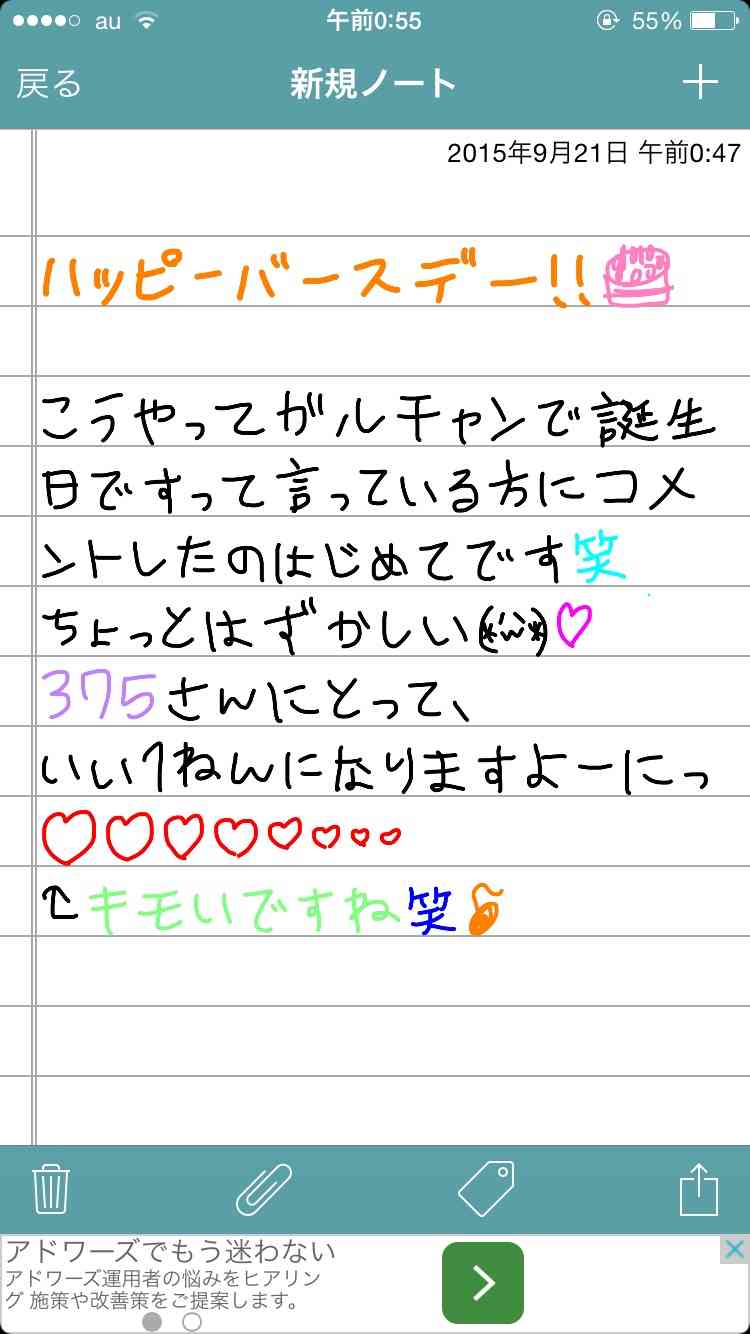 au 午前0:55 55%
戻る 新規ノート
2015年9月21日 午前0:47
ハッピーバースデー!!
こうやってガルチャンで誕生
日ですって言っている方にコメ
ントしたのはじめてです笑
ちょっとはずかしい(*'ω'*)♡
375さんにとって、
いい1ねんになりますよーにっ
♡♡♡♡♡♡♡♡
↑キモいですね笑
アドワーズでもう迷わない
アドワーズ運用者の悩みをヒアリン
グ 施策や改善策をご提案します。